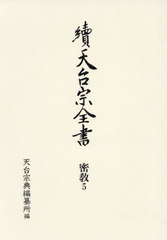 續天台宗全書
密教5
天台宗典編纂所 編